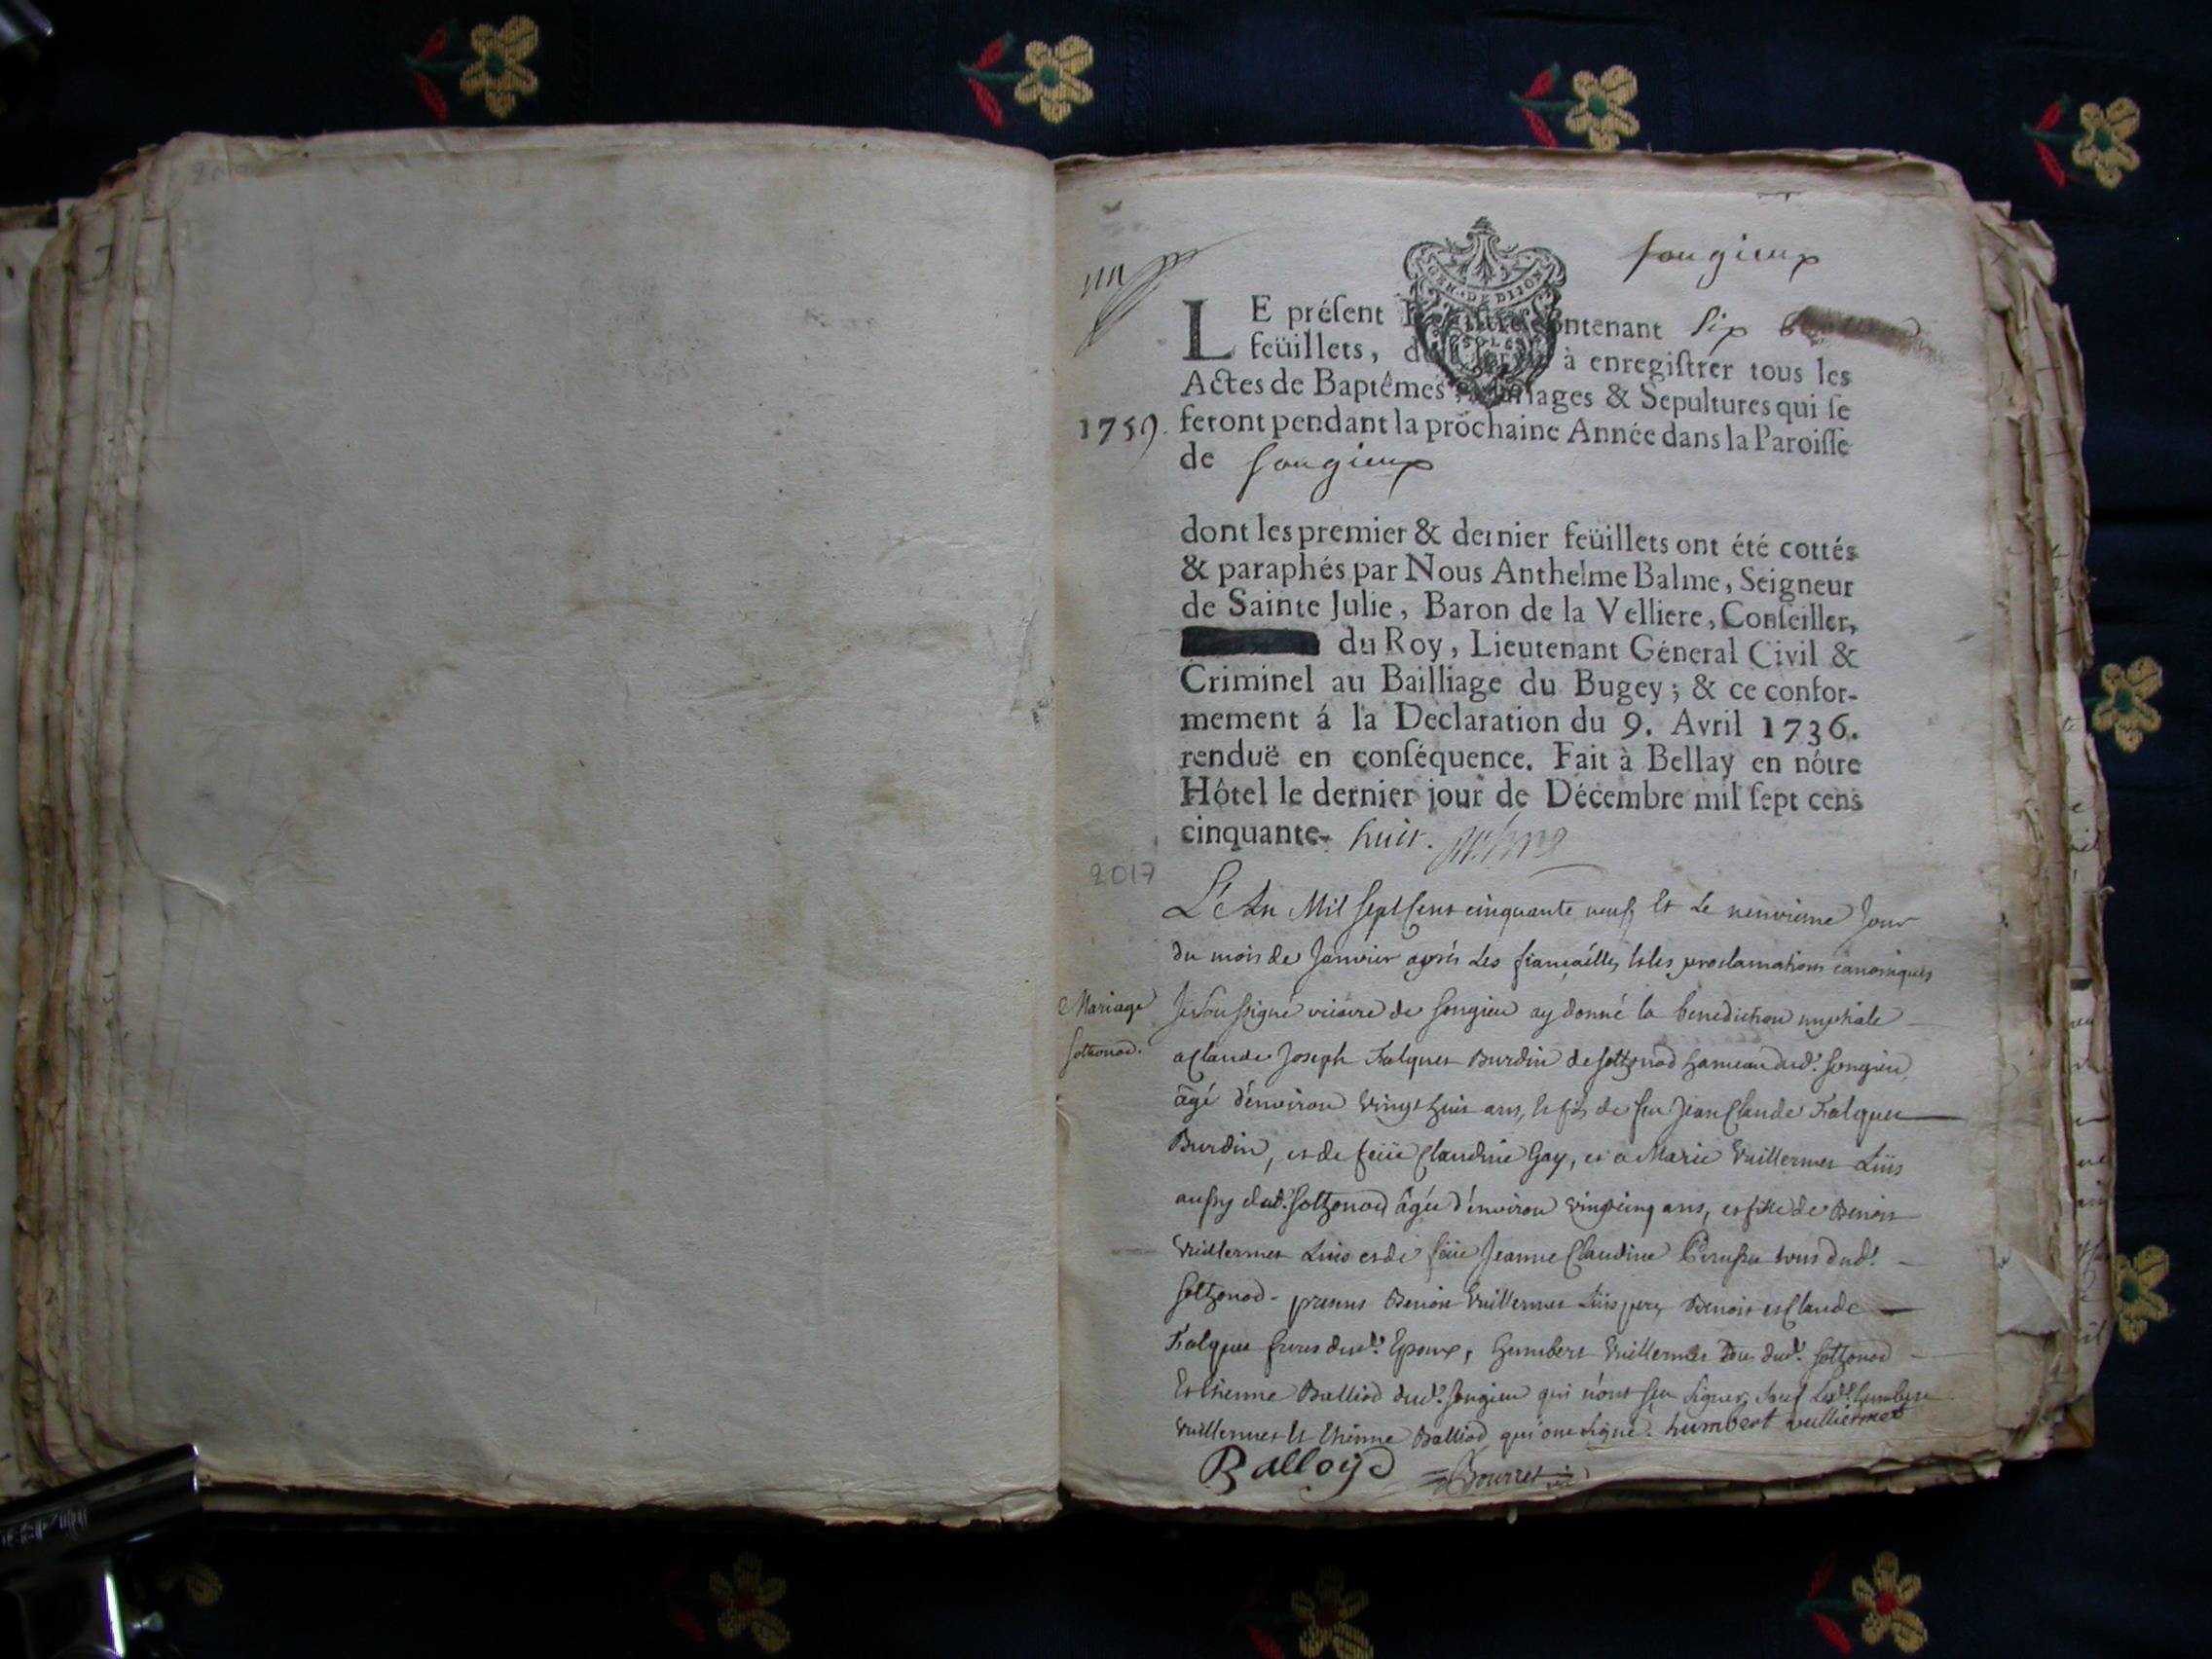 un
songieux
GEN. DE DIJON
LE préſent Regiſtre contenant six
feüillets, doit ſervir à enregiſtrer tous les
Actes de Baptêmes, Mariages & Sepultures qui ſe
1759. feront pendant la prochaine Année dans la Paroiſſe
de songieux
dont les premier & dernier feüillets ont été cottés
& paraphés par Nous Anthelme Balme, Seigneur
de Sainte Julie, Baron de la Velliere, Conſeiller,
du Roy, Lieutenant Géneral Civil &
Criminel au Bailliage du Bugey; & ce confor-
mement á la Declaration du 9. Avril 1736.
renduë en conſéquence. Fait à Bellay en nôtre
Hôtel le dernier jour de Décembre mil ſept cens
cinquante- huit. Balme
2017
L'An Mil sept cent cinquante neuf, et le neuvieme Jour
du mois de Janvier aprés les fiancailles et les proclamations canoniques
Mariage Je soussigné vicaire de songieu ay donné la benediction nuptiale
sothonod. a Claude Joseph Falques Burdin de sothonod hameau dud.t songieu,
âgé d'environ vingt huit ans, et fils de feu Jean Claude Falques
Burdin, et de feüe Claudine Gay, et a Marie Vuillermet Luis
aussy dud.t sothonod âgée d'environ vingt cinq ans, et fille de Benoit
Vuillermet Luis et de feüe Jeanne Claudine tous dud.t
sothonod - presens Benoit Vuillermet Luis pere, Benoit et Claude
Falques freres dud.t Epoux, humbert Vuillermet dud.t sothonod
Et Etienne Balliod dud.t songieu qui n'ont sçu signer, sauf led.t humbert
Vuillermet et Etienne Balliod qui ont signé. humbert vulliermet
Balloyd Bourret